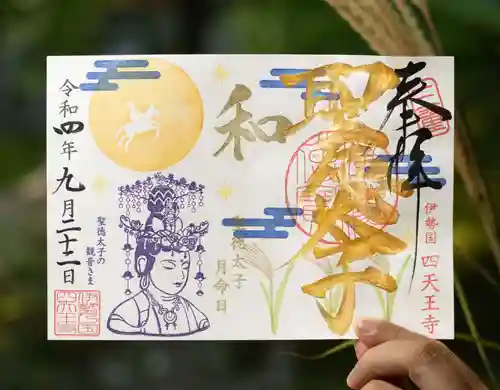 奉拝
伊勢国 四天王寺
聖徳太子
和
聖徳太子
月命日
聖徳太子の
観音さま
令和四年九月二十二日